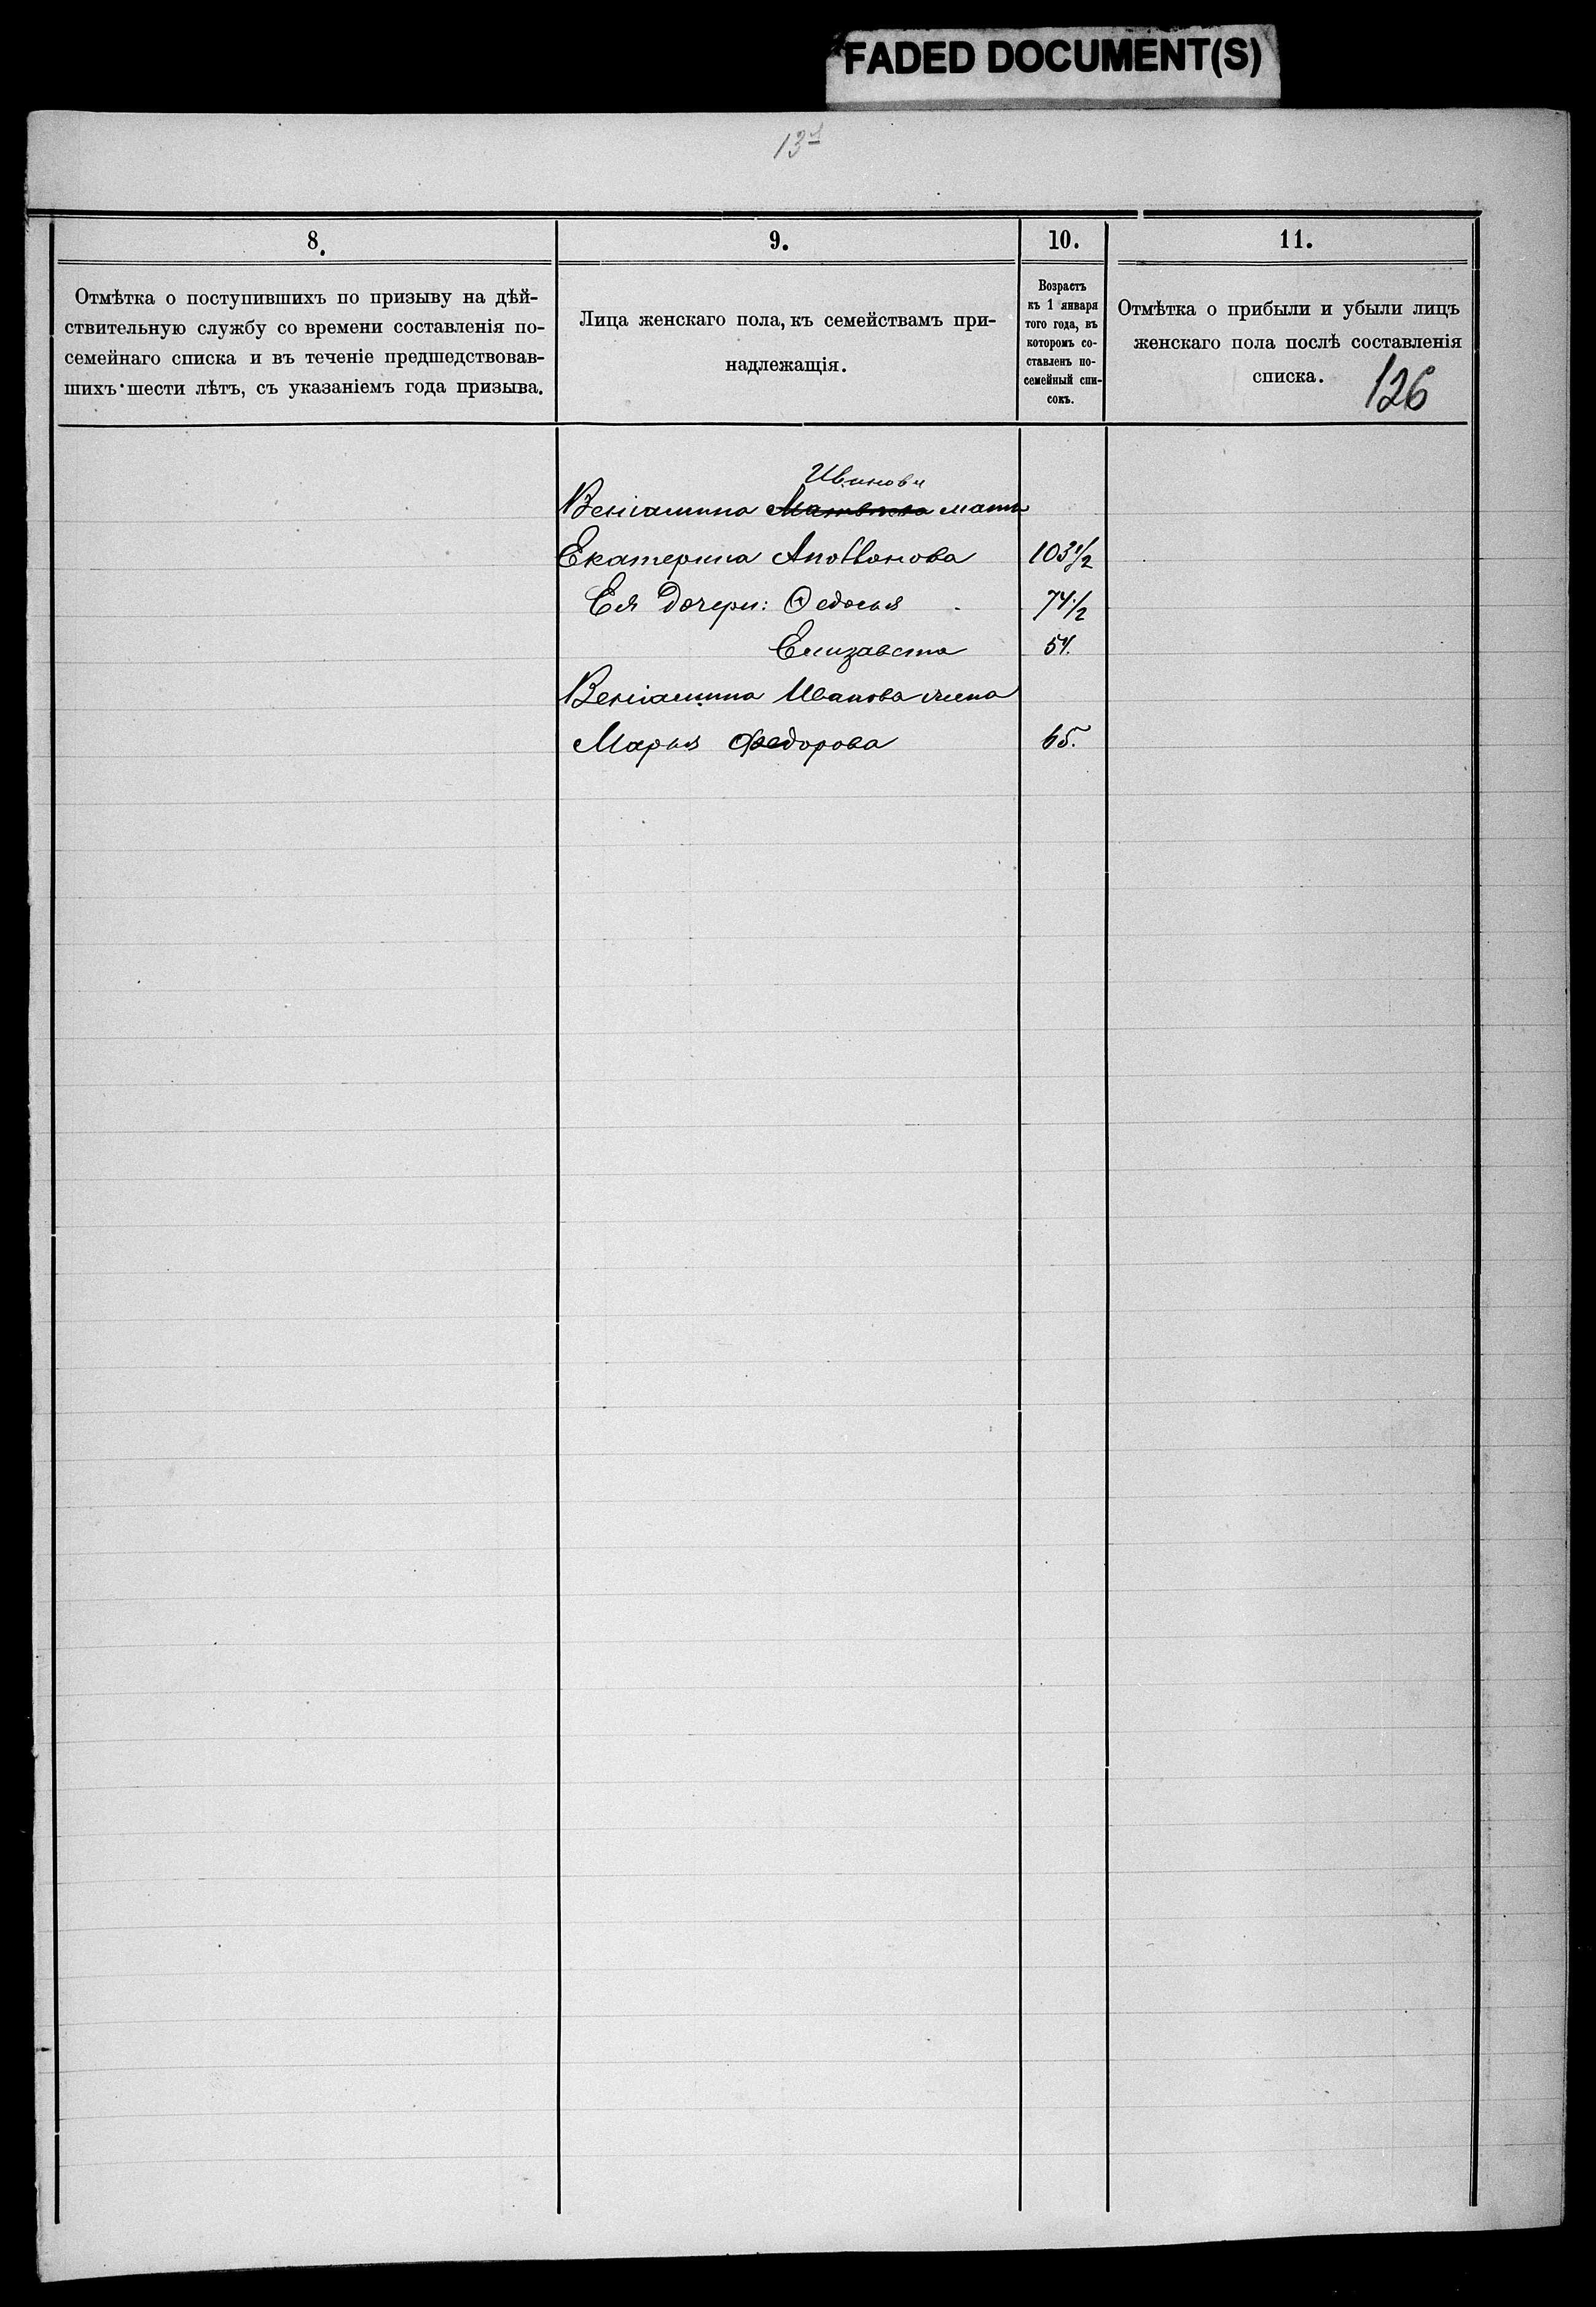 FADED DOCUMENT(S)
8.
Отмѣтка о поступившихъ по призыву на дѣй-
ствительную службу со времени составленія по-
семейнаго списка и въ теченіе предшедствовав-
шихъ шести лѣтъ, съ указаніемъ года призыва.
9.
Лица женскаго пола, къ семействамъ при-
надлежащія.
10.
Возрастъ
къ 1 января
того года, въ
которомъ со-
ставленъ по-
семейный спи-
сокъ.
11.
Отмѣтка о прибыли и убыли лицъ
женскаго пола послѣ составленія
списка.
126
Иванова
Веніамина Матвѣева мать
Екатерина 103 1/2
Ея дочери: Ѳедосья 74 1/2
Елизавета 54.
Веніамина Иванова жена
Марья Федорова 65.